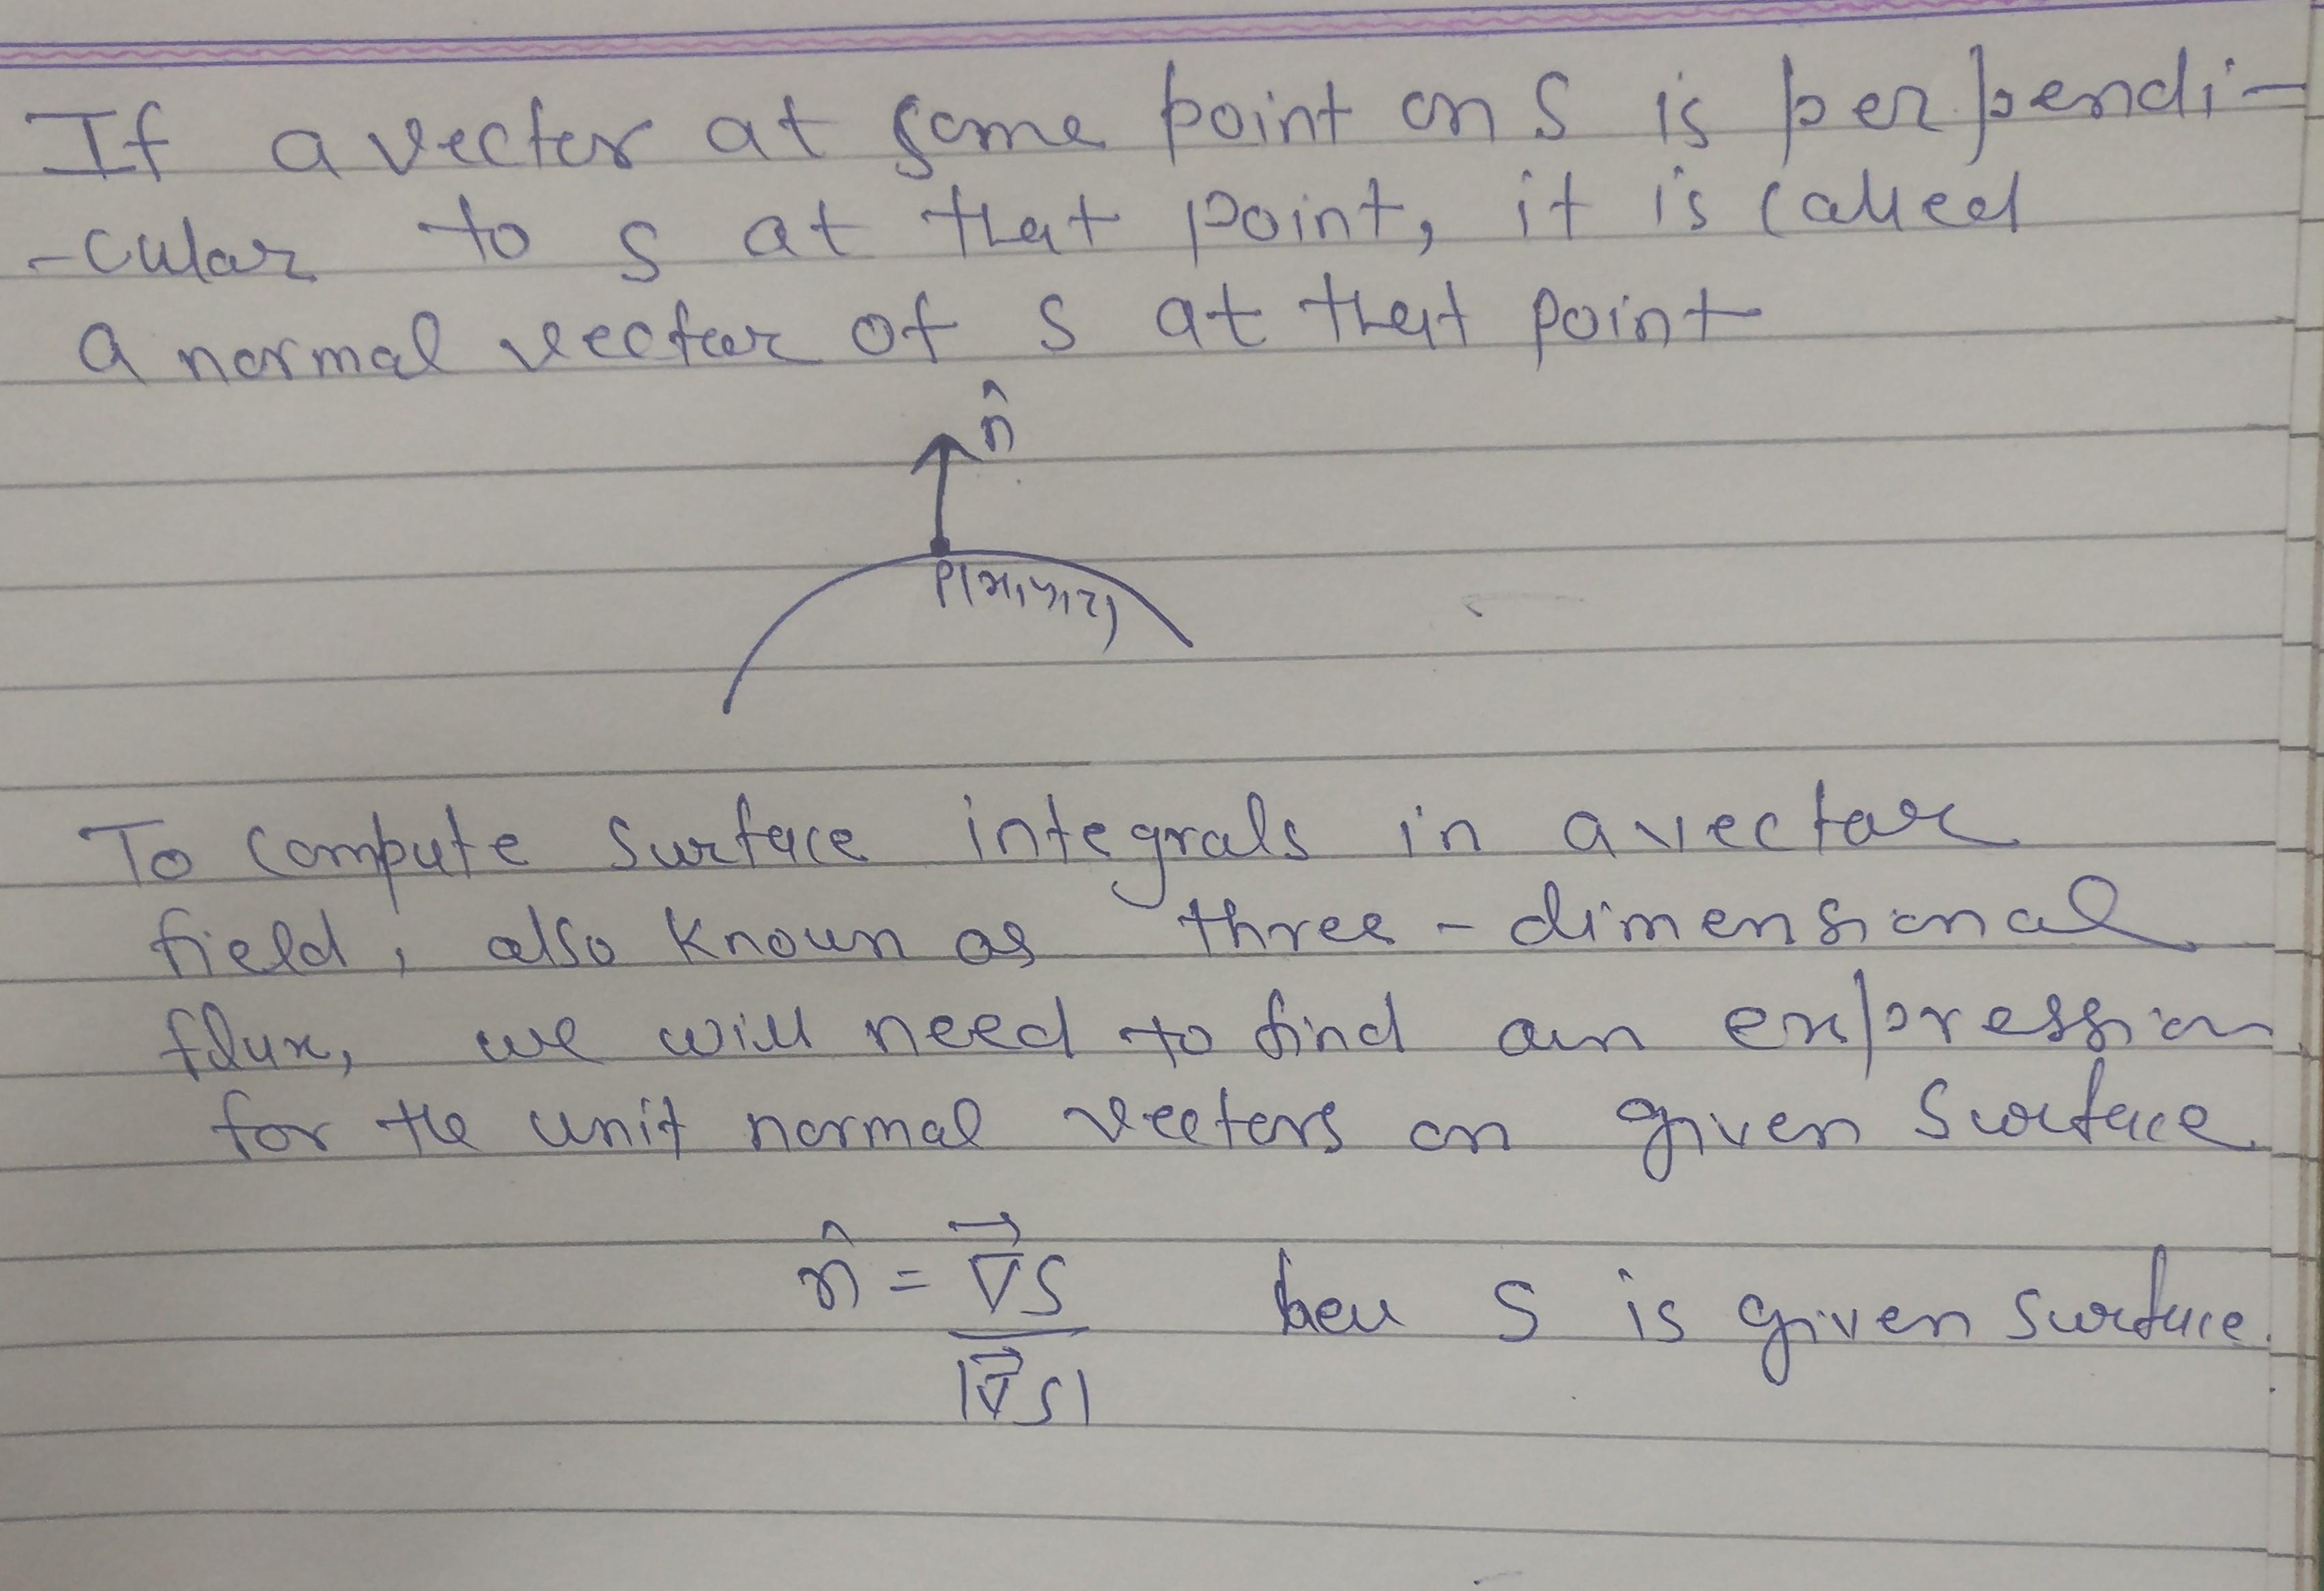 If a vector at some point on S is perpendi-
-cular to S at that point, it is called
a normal vector of S at that point
n̂
P(x,y,z)
To compute surface integrals in a vector
field, also known as three-dimensional
flux, we will need to find an expression
for the unit normal vectors on given surface
n̂ = ∇⃗S / |∇⃗S| S is given surface.